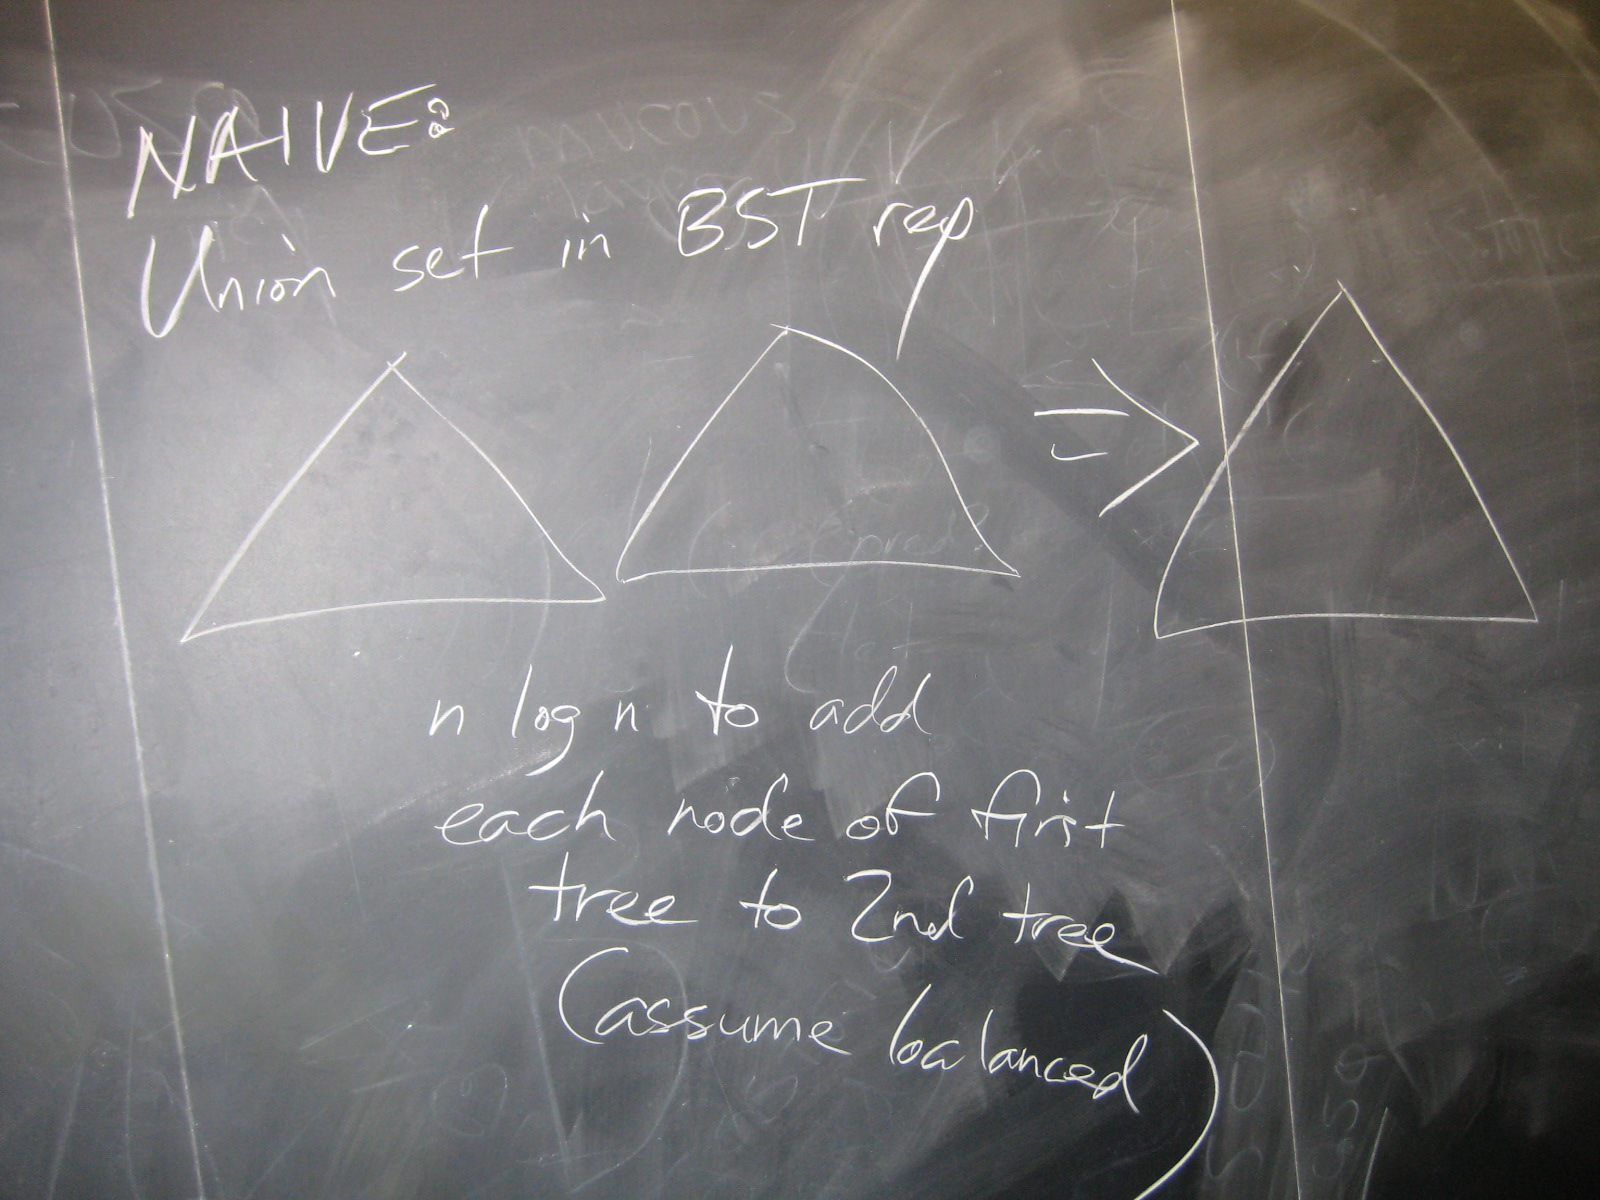 NAIVE:
Union set in BST rep
n log n to add
each node of first
tree to 2nd tree
(assume balanced)